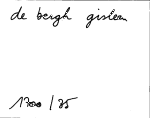 de bergh gislen
1700 / 85